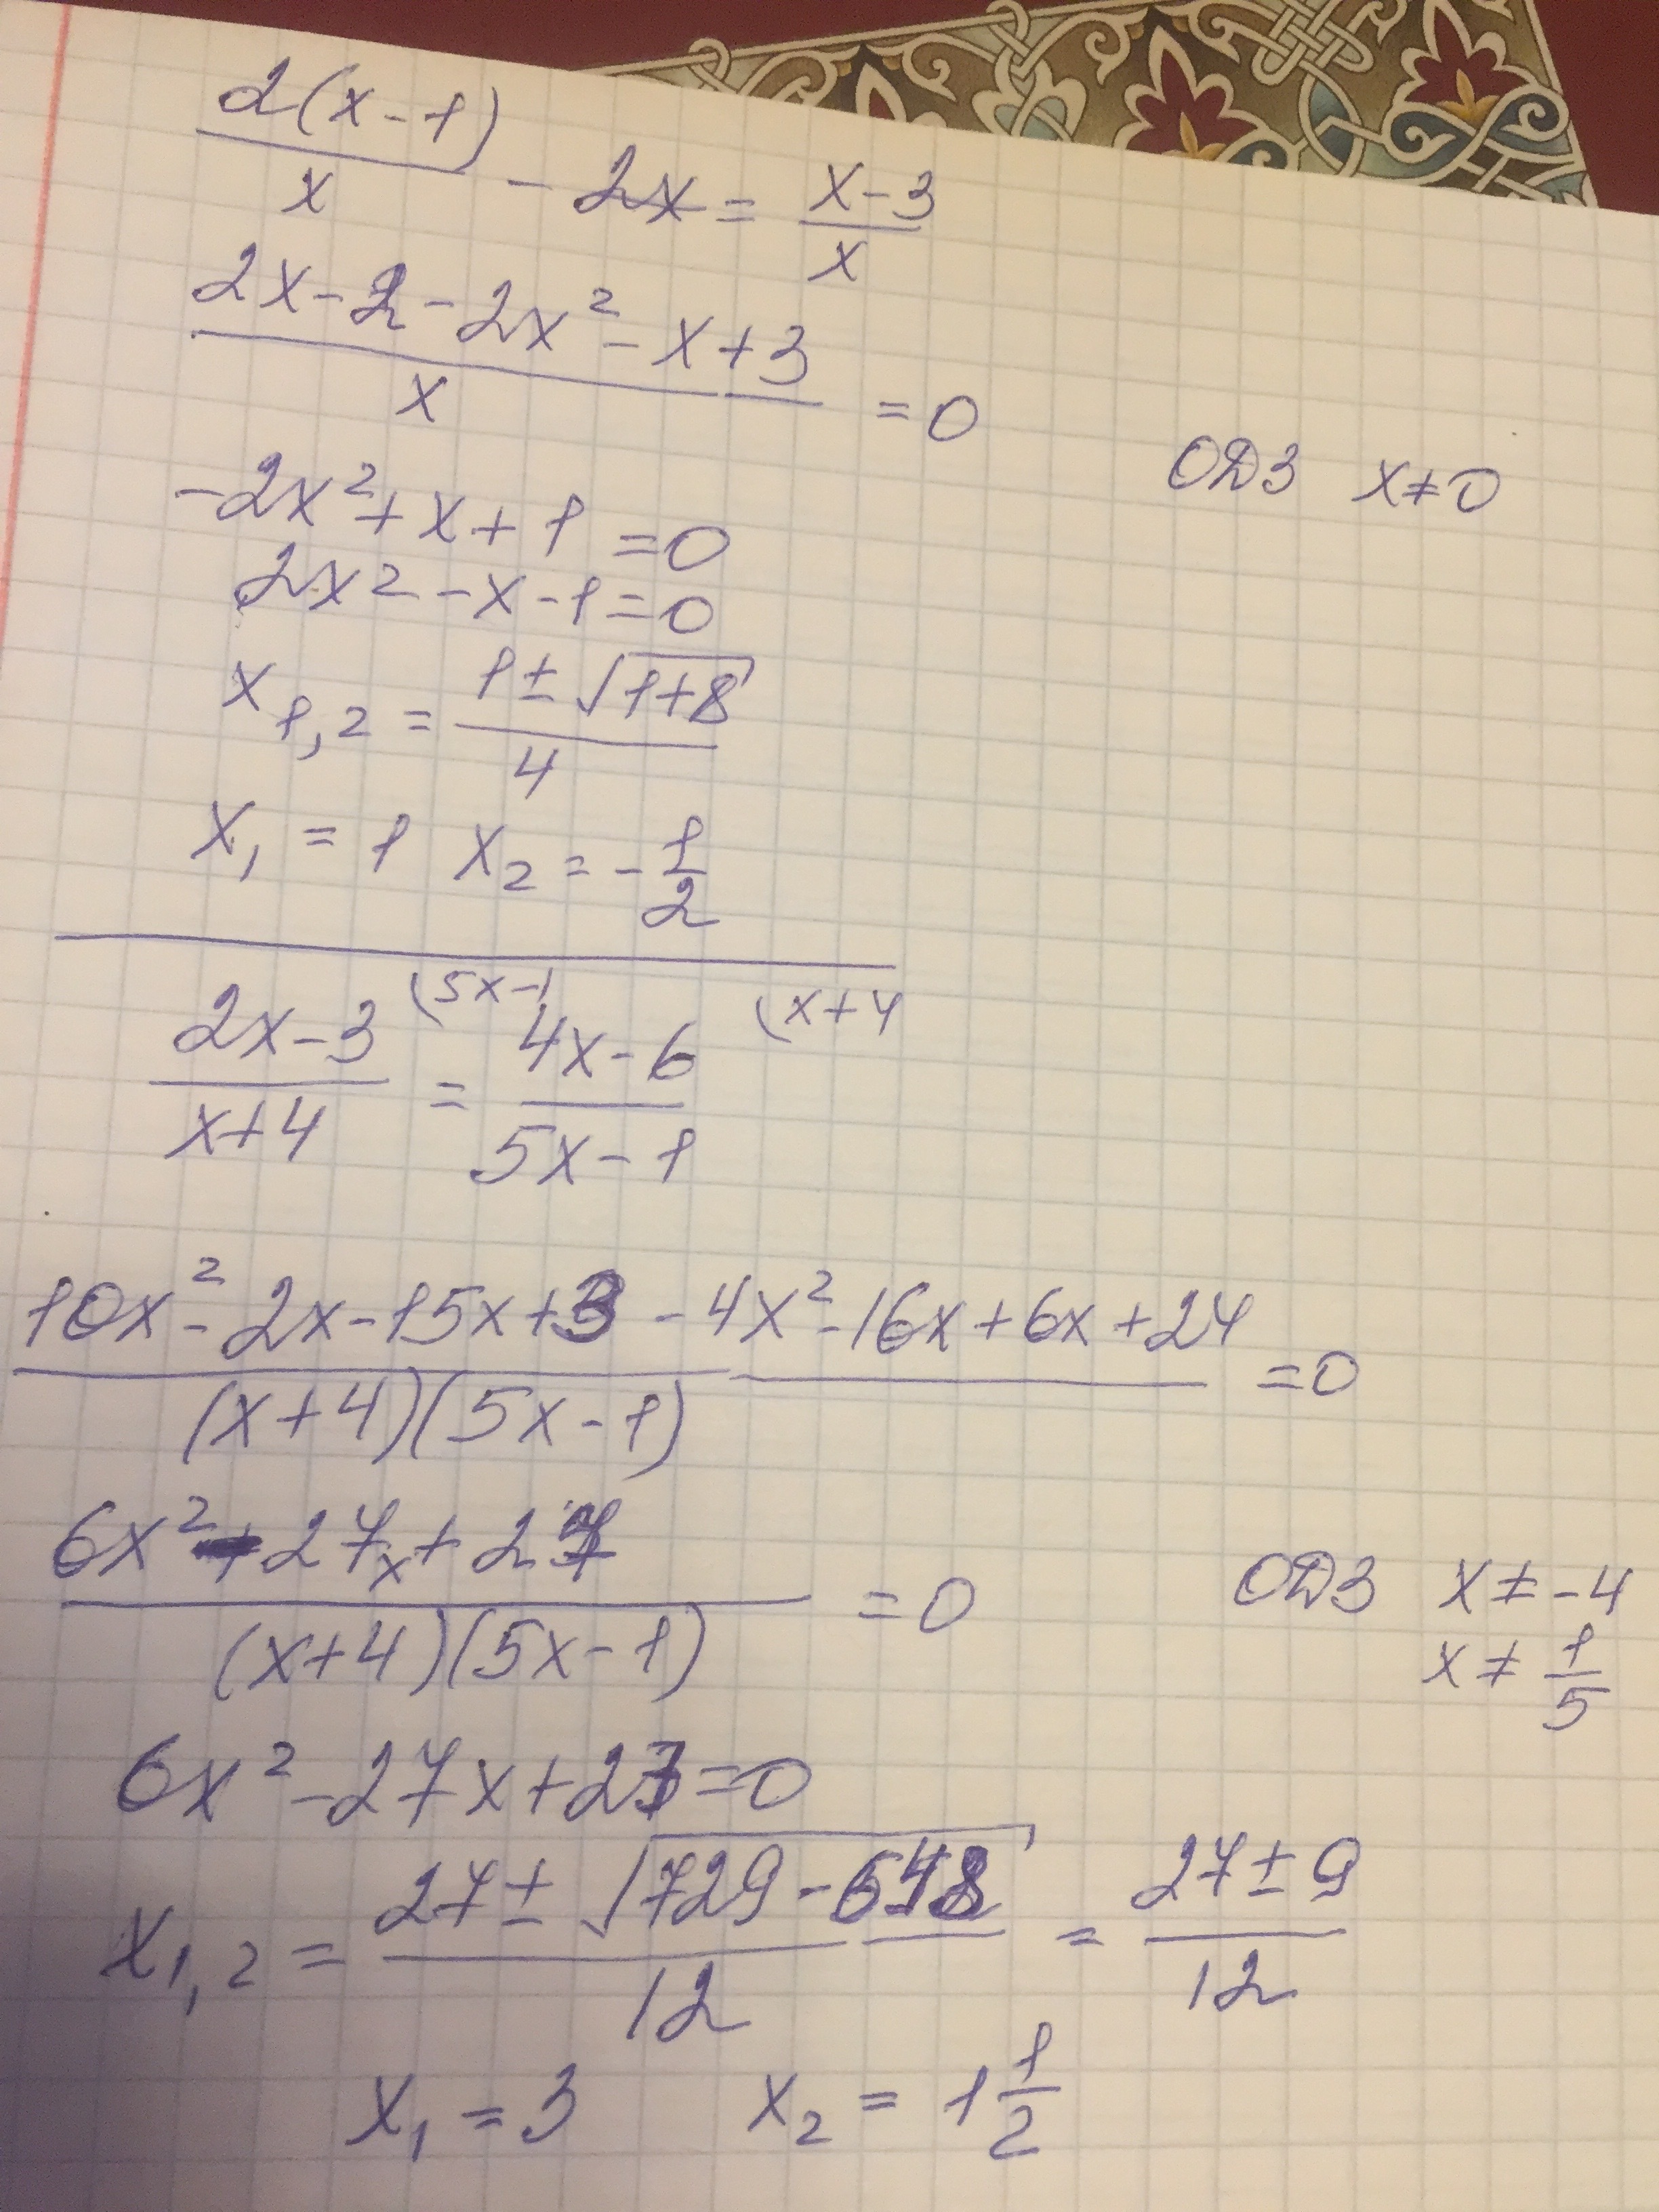 2(x-1)/x - 2x = x-3/x
2x-2-2x²-x+3/x = 0
ОДЗ x≠0
-2x²+x+1=0
2x²-x-1=0
x1,2 = 1±√1+8/4
x1 = 1 x2 = -1/2
2x-3/x+4 (5x-1 = 4x-6/5x-1 (x+4
10x²-2x-15x+3-4x²-16x+6x+24/(x+4)(5x-1) = 0
6x²-27x+27/(x+4)(5x-1) = 0
ОДЗ x≠-4
x≠1/5
6x²-27x+27=0
x1,2 = 27±√729-648/12 = 27±9/12
x1 = 3 x2 = 1 1/2